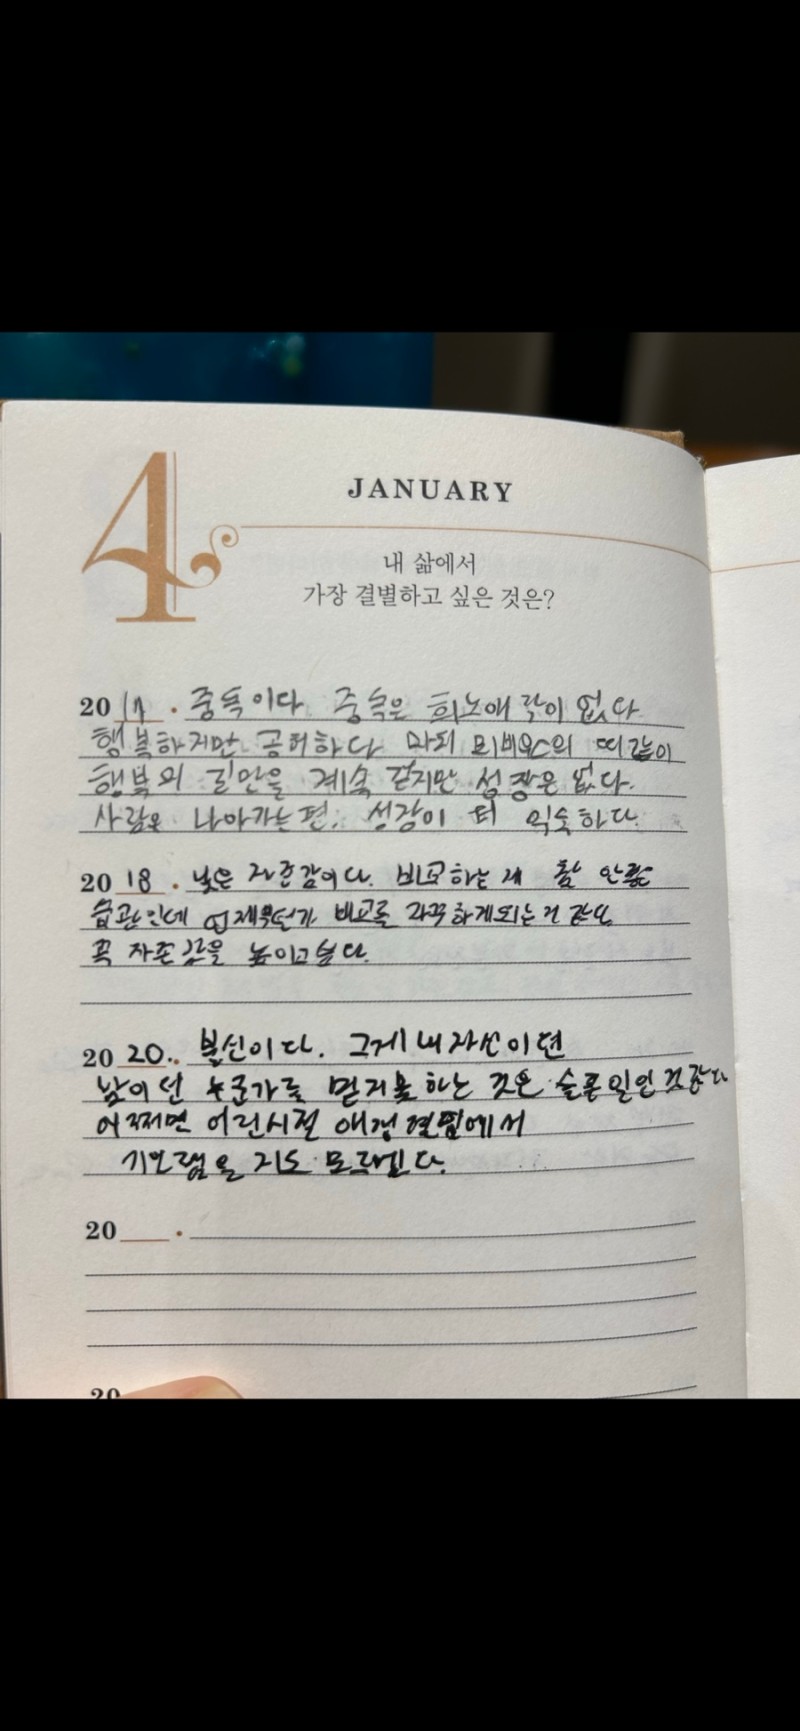 4
JANUARY
내 삶에서
가장 결별하고 싶은 것은?
20 17 . 중독이다 중독은 희노애락이 없다
행복하지만 공허하다 마치 뫼비우스의 띠 같이
행복의 길만을 계속 걷지만 성장은 없다.
사람은 나아가는 편. 성장이 더 익숙하다.
20 18 . 낮은 자존감이다. 비교하는 게 참 안좋은
습관인데 언제부턴가 비교를 자꾸하게되는 것 같다.
꼭 자존감을 높이고싶다.
20 20. . 불신이다. 그게 내 자신이던
남이던 누군가를 믿지못하는 것은 슬픈일인 것 같다
어쩌면 어린시절 애정결핍에서
지도 모르겠다.
20 .
20